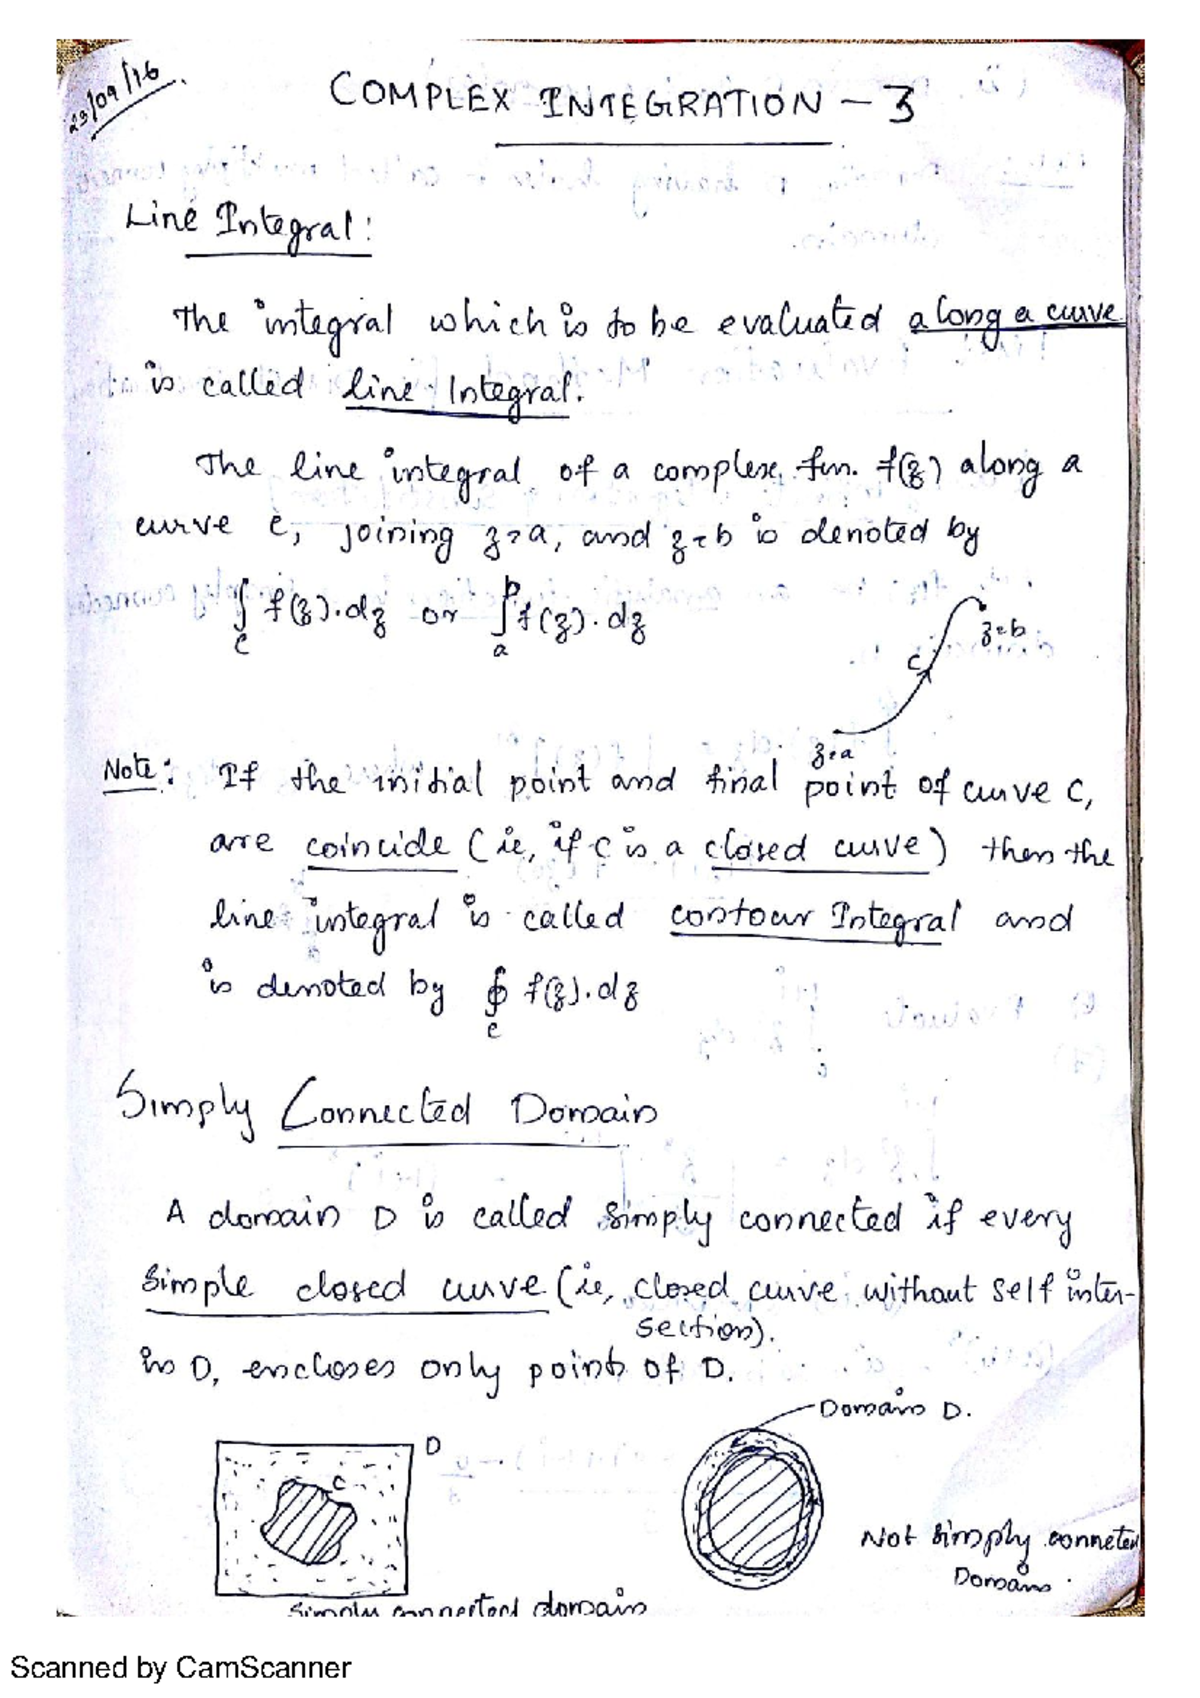 23/09/16
COMPLEX INTEGRATION - 3
Line Integral:
The integral which is to be evaluated along a curve
is called line Integral.
The line integral of a complex fun. f(z) along a
curve c, joining z=a, and z=b is denoted by
∫ f(z).dz or ∫ f(z).dz
c
b
a
z=b
c
z=a
Note: If the initial point and final point of curve C,
are coincide (ie, if C is a closed curve) then the
line integral is called contour Integral and
is denoted by ∮ f(z).dz
c
Simply Connected Domain
A domain D is called simply connected if every
simple closed curve (ie, closed curve without self inter-
section).
in D, encloses only points of D.
Domain D.
D
C
Not simply conneted
Domain.
Simply connected domain
Scanned by CamScanner